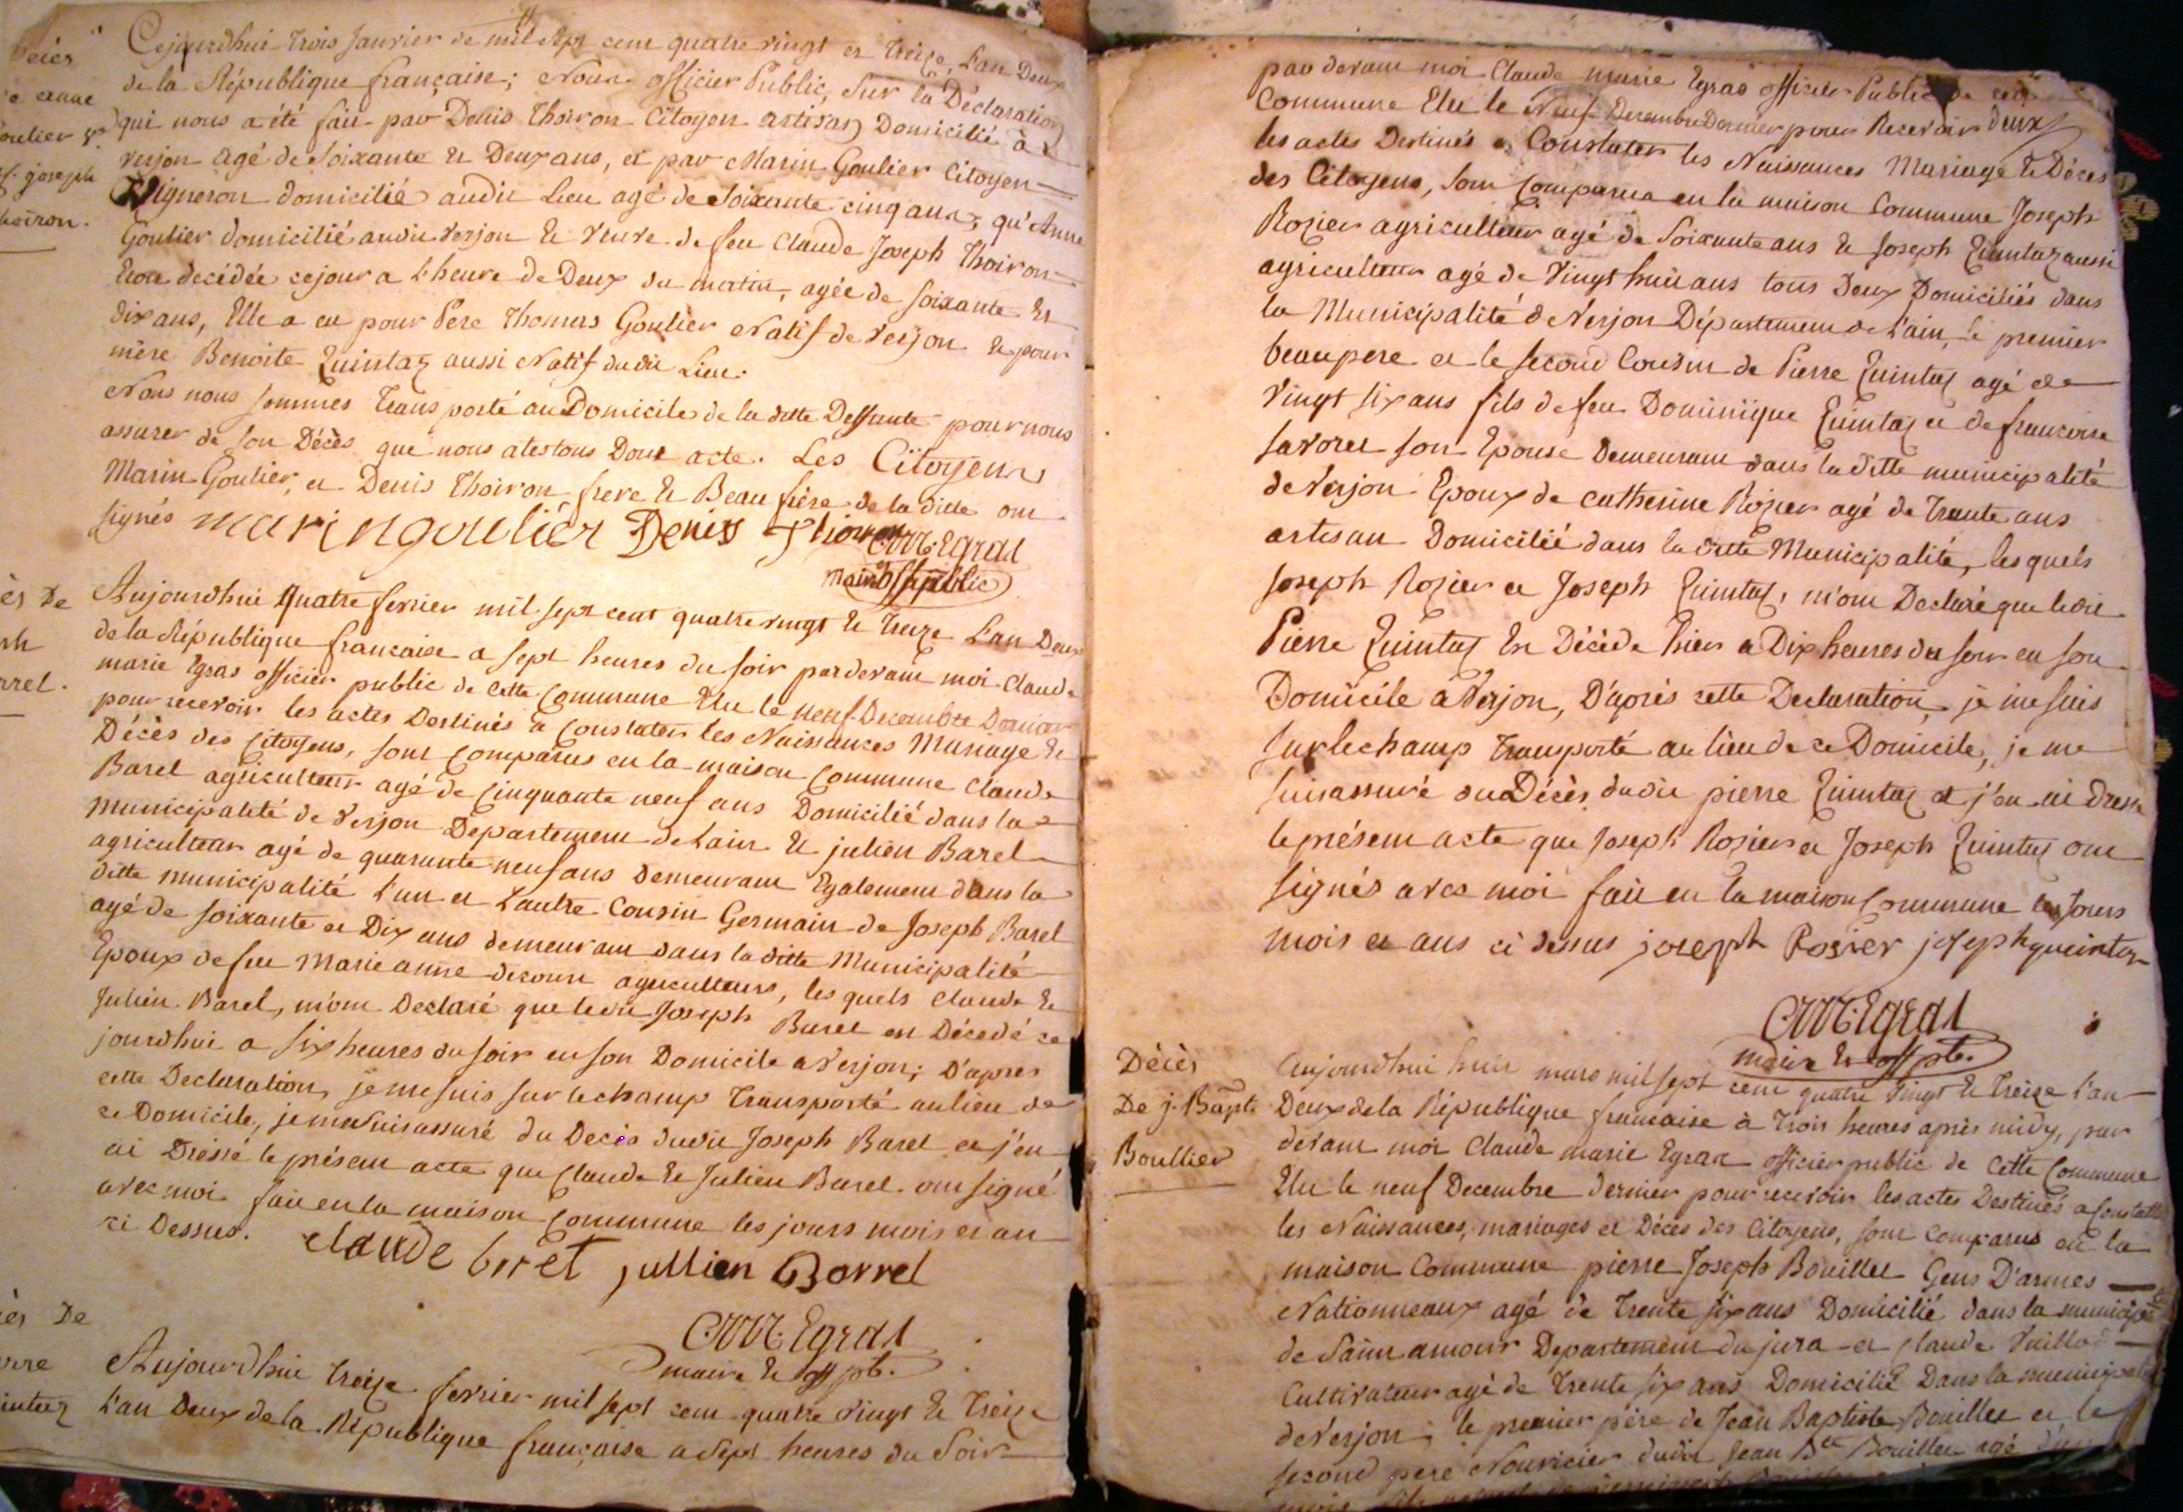 Décès
e anne
oulier ve
Cl. joseph
hoiron.
Cejourdhui trois Janvier de mil sept cent quatre vingt et treize, L'an Deux
de la République française; Nous officier Public, Sur la Déclaration
qui nous a été fait par Denis Thoiron Citoyen artisan Domicilié à
verjon agé de Soixante et Deux ans, et par Marin Goulier Citoyen
Vigneron domicilié audit Lieu agé de Soixante cinq ans, qu'Anne
Goulier domicilié audit verjon et veuve de feu Claude Joseph Thoiron
decédée cejour a L'heure de Deux du matin, agée de soixante et
dix ans, Elle a eu pour Pere Thomas Goulier Natif de Verjon et pour
mère Benoite Quintaz aussi Natif dudit Lieu.
Nous nous sommes transporté au Domicile de la ditte Deffunte pour nous
assurer de son Décès que nous atestons Dont acte. Les Citoyens
Marin Goulier, et Denis Thoiron frere et Beau frère de la ditte ont
signés marin goulier Denis Thoiron
CM. Egraz
maire off public
ès De
ph
rrel.
Aujourdhui Quatre fevrier mil sept cent quatre vingt et treize L'an Deux
de la République francaise a sept heures du soir pardevant moi Claude
marie Egras officier public de cette Commune Elu le neuf Decembre Dernier
pour recevoir les actes Destinés a Constater les Naissances Mariage et
Décès des Citoyens, sont Comparus en la maison Commune Claude
Barel agriculteur agé de Cinquante neuf ans Domicilié dans la
municipalité de Verjon Departement de Lain et julien Barel
agriculteur agé de quarante neuf ans demeurant Egalement dans la
ditte municipalité L'un et Lautre Cousin Germain de Joseph Barel
agé de soixante et Dix ans demeurant dans la ditte Municipalité
Epoux de feu Marie anne agriculteurs, les quels Claude et
Julien Barel, m'ont Declaré que ledit Joseph Barel est Décedé ce
jourdhui a six heures du soir en son Domicile a Verjon; D'apres
cette Declaration, je me suis sur le champ Transporté au lieu de
ce Domicile, je me suis assuré du Deces dudit Joseph Barel et j'en
ai Dressé le présent acte que Claude et Julien Barel ont signé
avec moi fait en la maison Commune les jours mois et an
ci Dessus. claude borel jullien Borrel
CM. Egraz
maire et off pb.
ès De
rre
inteaz
Aujourdhui treize fevrier mil sept cent quatre vingt et Treize
L'an Deux de la République française a sept heures du Soir
par devant moi Claude marie Egras officier Public de cette
Commune Elu le Neuf Decembre Dernier pour Recevoir
les actes Destinés a Constater les Naissances Mariage et Décès
des Citoyens, sont Comparus en la maison Commune Joseph
Rozier agriculteur agé de Soixante ans et Joseph Quintaz aussi
agriculteur agé de Vingt huit ans tous Deux Domiciliés dans
la Municipalité de Verjon Département de L'ain, le premier
beaupere et le second Cousin de Pierre Quintaz agé de
Vingt six ans fils de feu Dominique Quintaz et de francoise
son Epouse Demeurant dans la ditte municipalité
de Verjon Epoux de catherine Rozier agé de Trente ans
artisan Domicilié dans la ditte Municipalité, lesquels
Joseph Rozier et Joseph Quintaz, m'ont Declaré que ledit
Pierre Quintaz Est Décédé hier a Dix heures du soir en son
Domicile a Verjon, D'après cette Declaration, je me suis
sur le champ transporté au lieu de ce Domicile, je me
suis assuré du Décès dudit pierre Quintaz et j'en ai dressé
le présent acte que Joseph Rozier et Joseph Quintaz ont
signés avec moi fait en la maison Commune les Jours
mois et ans ci dessus joseph Rosier joseph queintaz
CM. Egraz
maire et off pb.
Décès
De j. Bapt.
Boullier
Aujourdhui huit mars mil sept cent quatre vingt et treize L'an
Deux de la République francaise à Trois heures après midy, par
devant moi Claude marie Egraz officier public de cette Commune
Elu le neuf Decembre dernier pour recevoir les actes Destinés a Constater
les Naissances, mariages et Décès des Citoyens, sont comparus en la
maison Commune pierre Joseph Bouillet Gens D'armes
Nationneaux agé de trente six ans Domicilié dans la
de Saint amour Departement du jura et Claude
Cultivateur agé de trente six ans Domicilié Dans la
de Verjon, le premier père de Jean Baptiste Bouillet et le
second pere Nouricier dudit Jean Bte Bouillet agé